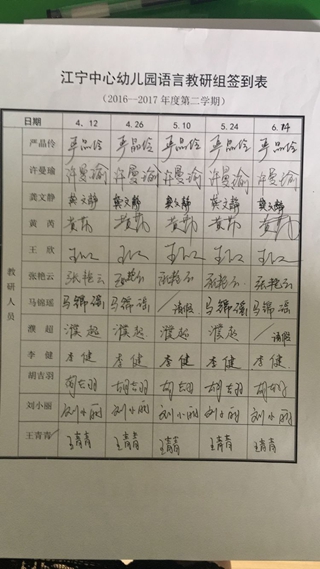 江宁中心幼儿园语言教研组签到表
(2016—2017 年度第二学期)
日期 4. 12 4. 26 5. 10 5. 24 6. 14
教研人员
严品伶 严品伶 严品伶 严品伶 严品伶 严品伶
许曼瑜 许曼瑜 许曼瑜 许曼瑜 许曼瑜 许曼瑜
龚文静 龚文静 龚文静 龚文静 龚文静 龚文静
黄芮 黄芮 黄芮 黄芮 黄芮 黄芮
王欣 王欣 王欣 王欣 王欣 王欣
张艳云 张艳云 张艳云 张艳云 张艳云 张艳云
马锦瑶 马锦瑶 马锦瑶 /请假 马锦瑶 马锦瑶
濮超 濮超 濮超 濮超 濮超 /请假
李健 李健 李健 李健 李健 李健
胡吉羽 胡吉羽 胡吉羽 胡吉羽 胡吉羽 胡吉羽
刘小丽 刘小丽 刘小丽 刘小丽 刘小丽 刘小丽
王青青 王青青 王青青 王青青 王青青 王青青